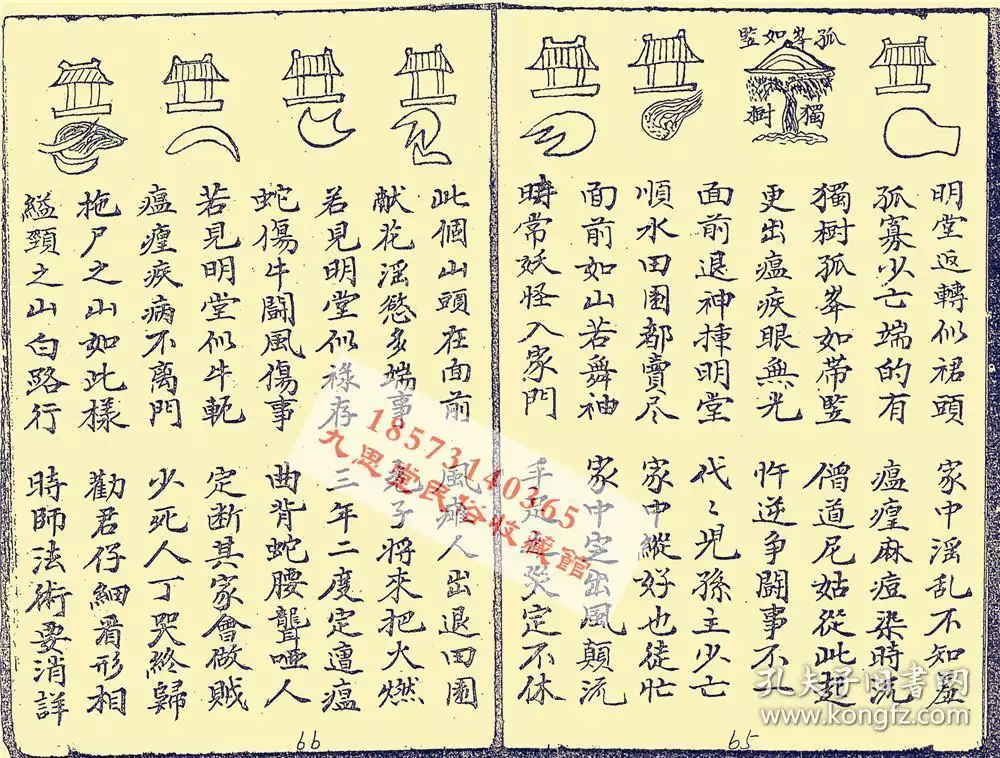 孤峯如竪
獨樹
明堂返轉似裙頭 家中淫乱不知羞
孤寡少亡端的有 瘟㾮麻痘染時流
獨樹孤峯如帶竪 僧道尼姑從此起
更出瘟疾眼無光 忤逆争鬪事不一
面前退神揰明堂 代〻児孫主少亡
順水田園都賣尽 家中縱好也徒忙
面前如山若舞袖 家中定出風顛流
時常妖怪入家門 手足災定不休
65
此個山頭在面前 風瘫人出退田園
献花淫慾多端事 子將來把火燃
若見明堂似禄存 三年二度定遭瘟
蛇傷牛鬪風傷事 曲背蛇腰聾啞人
若見明堂似牛軛 定断其家會做贼
瘟㾮疾病不离門 少死人丁哭終歸
拖尸之山如此樣 勸君仔細看形相
縊頸之山白路行 時師法術要消詳
66
18573140365
九思堂民俗收藏館
孔夫子旧书网
www.kongfz.com